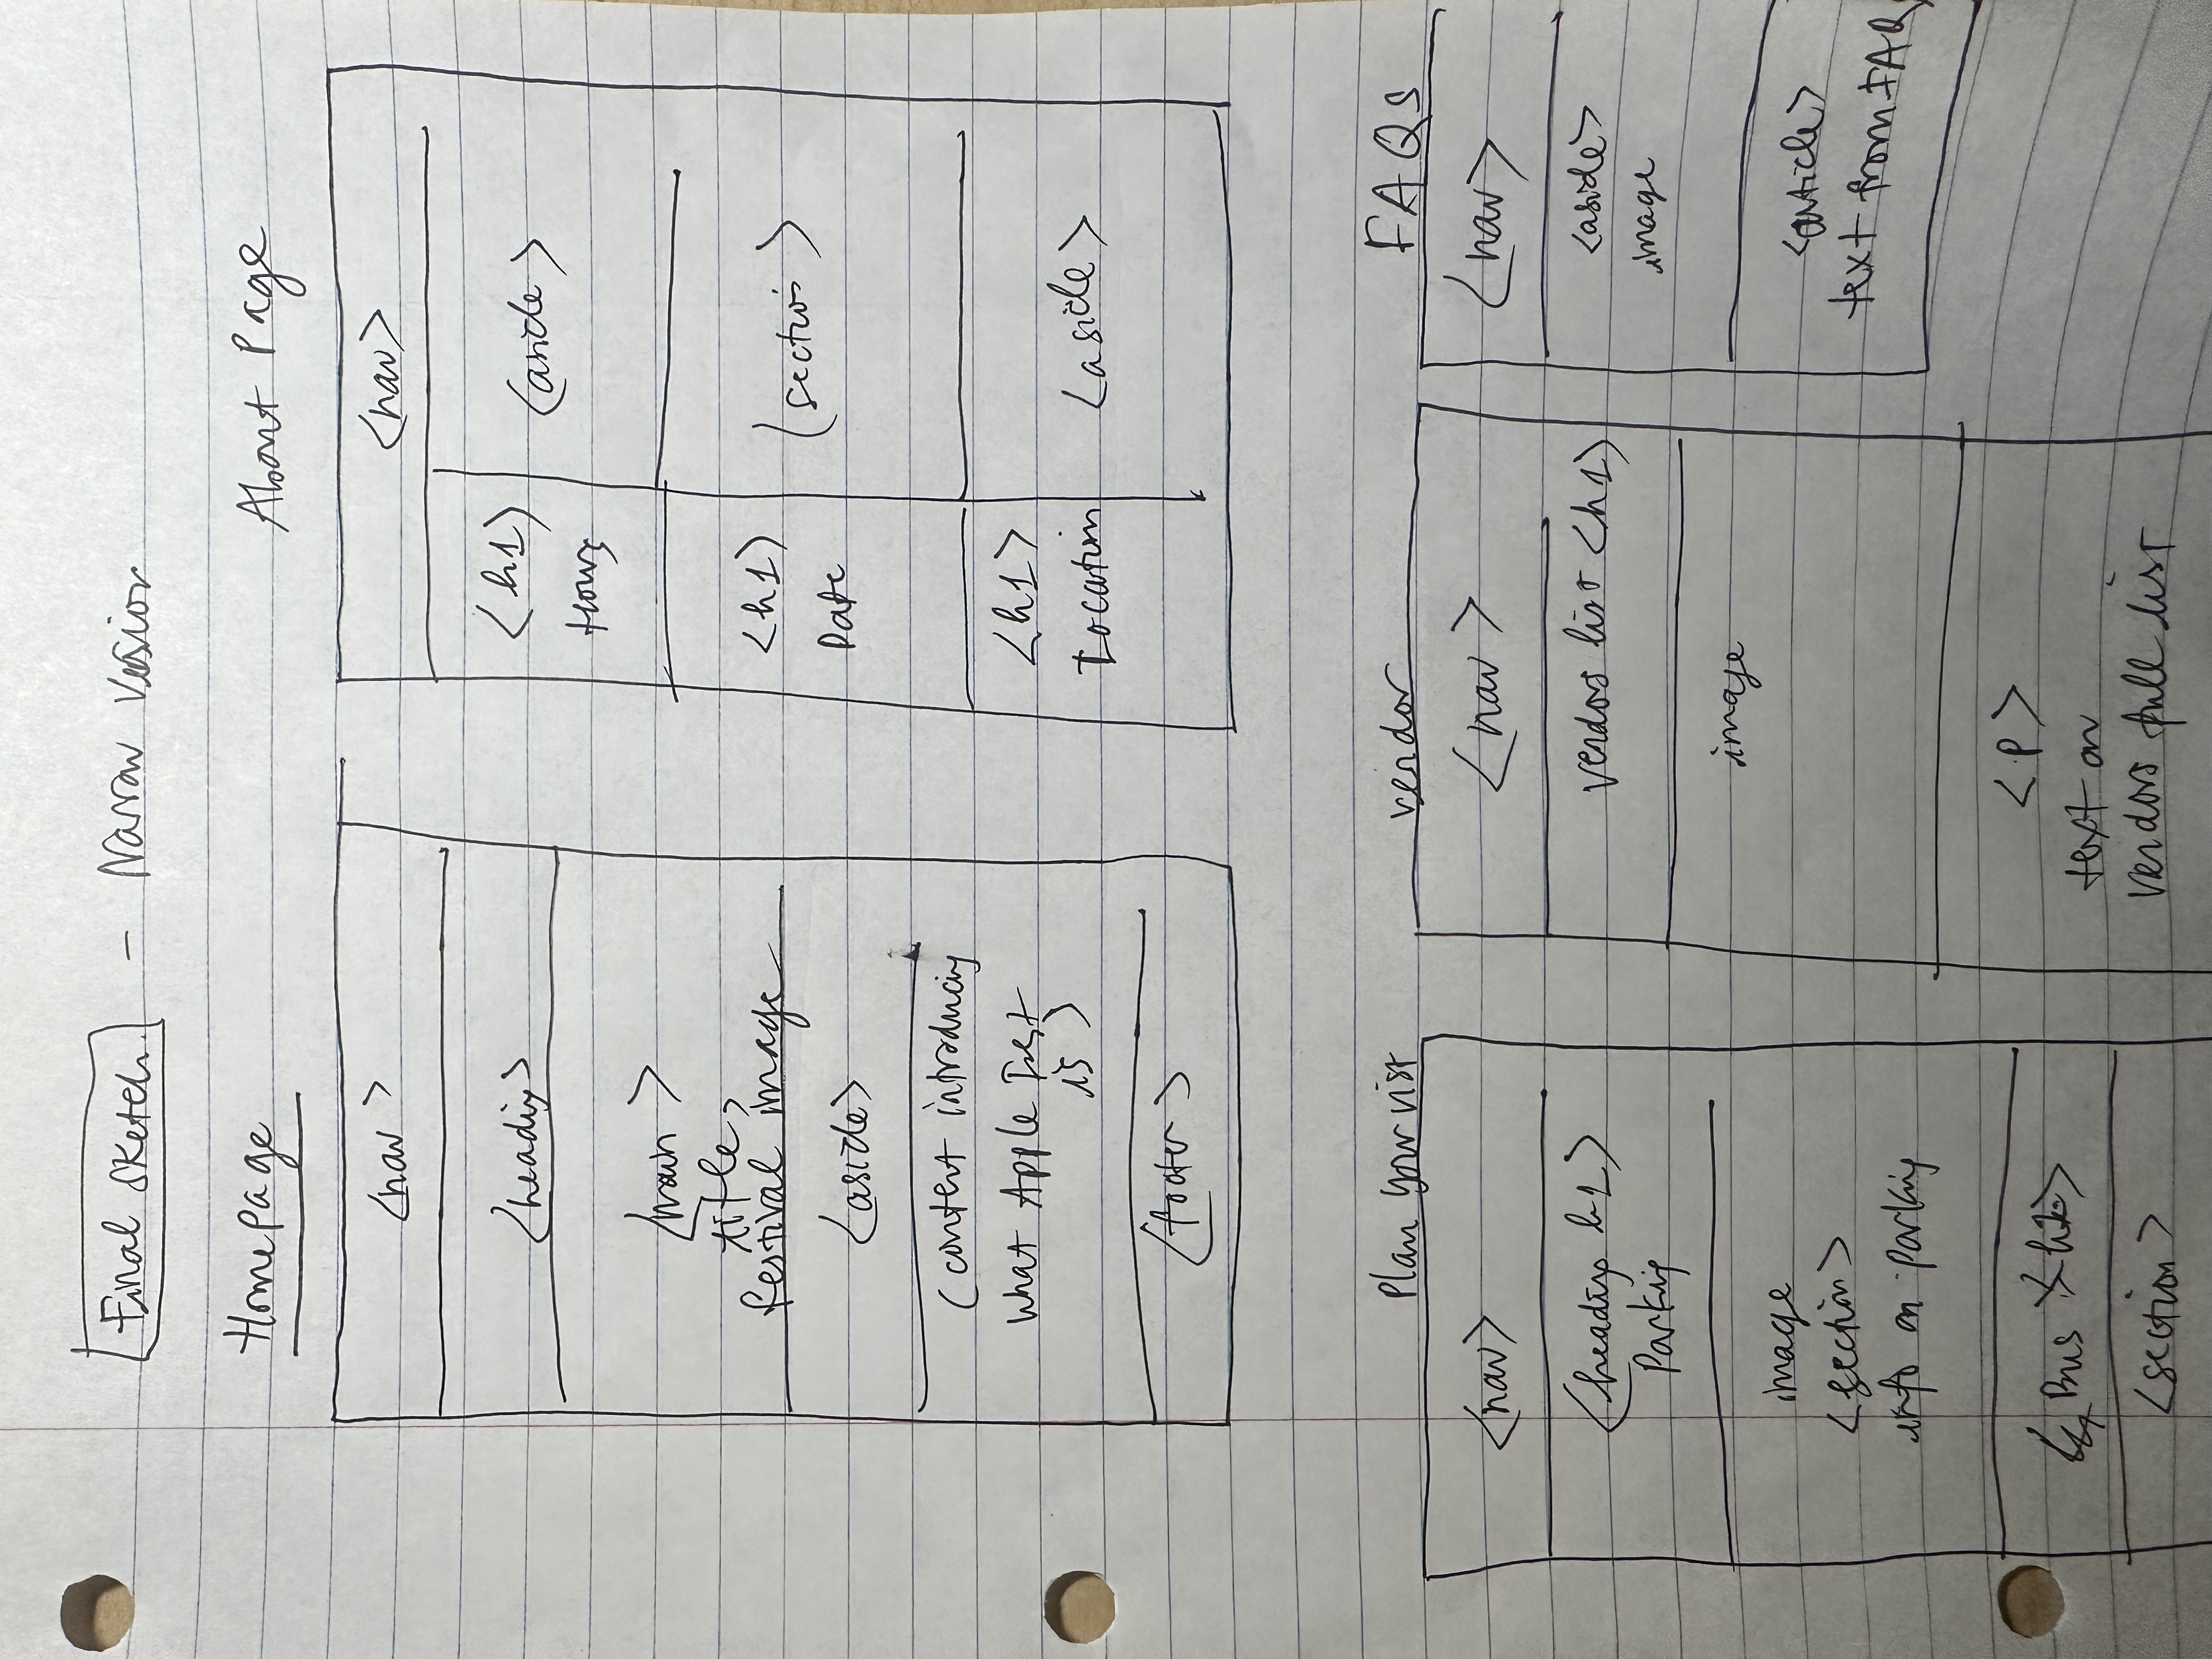 Final Sketch. – Narrow Version
Homepage
<nav>
<heading>
<main>
title,
festival image
<aside>
(content introducing
what Apple Fest
is)
<footer>
About Page
<nav>
<h1>
Hours
<aside>
<h1>
Date
<section>
<h1>
Location
<aside>
Plan your vist
<nav>
<heading h1>
Parking
image
<section>
info on parking
Bus <h2>
<section>
vendor
<nav>
vendors list <h1>
image
<p>
text on
vendors full list
FAQs
<nav>
<aside>
image
<article>
text from FAQ